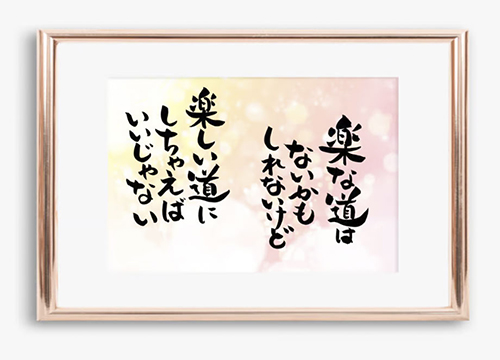 楽な道は
ないかも
しれないけど
楽しい道に
しちゃえば
いいじゃない